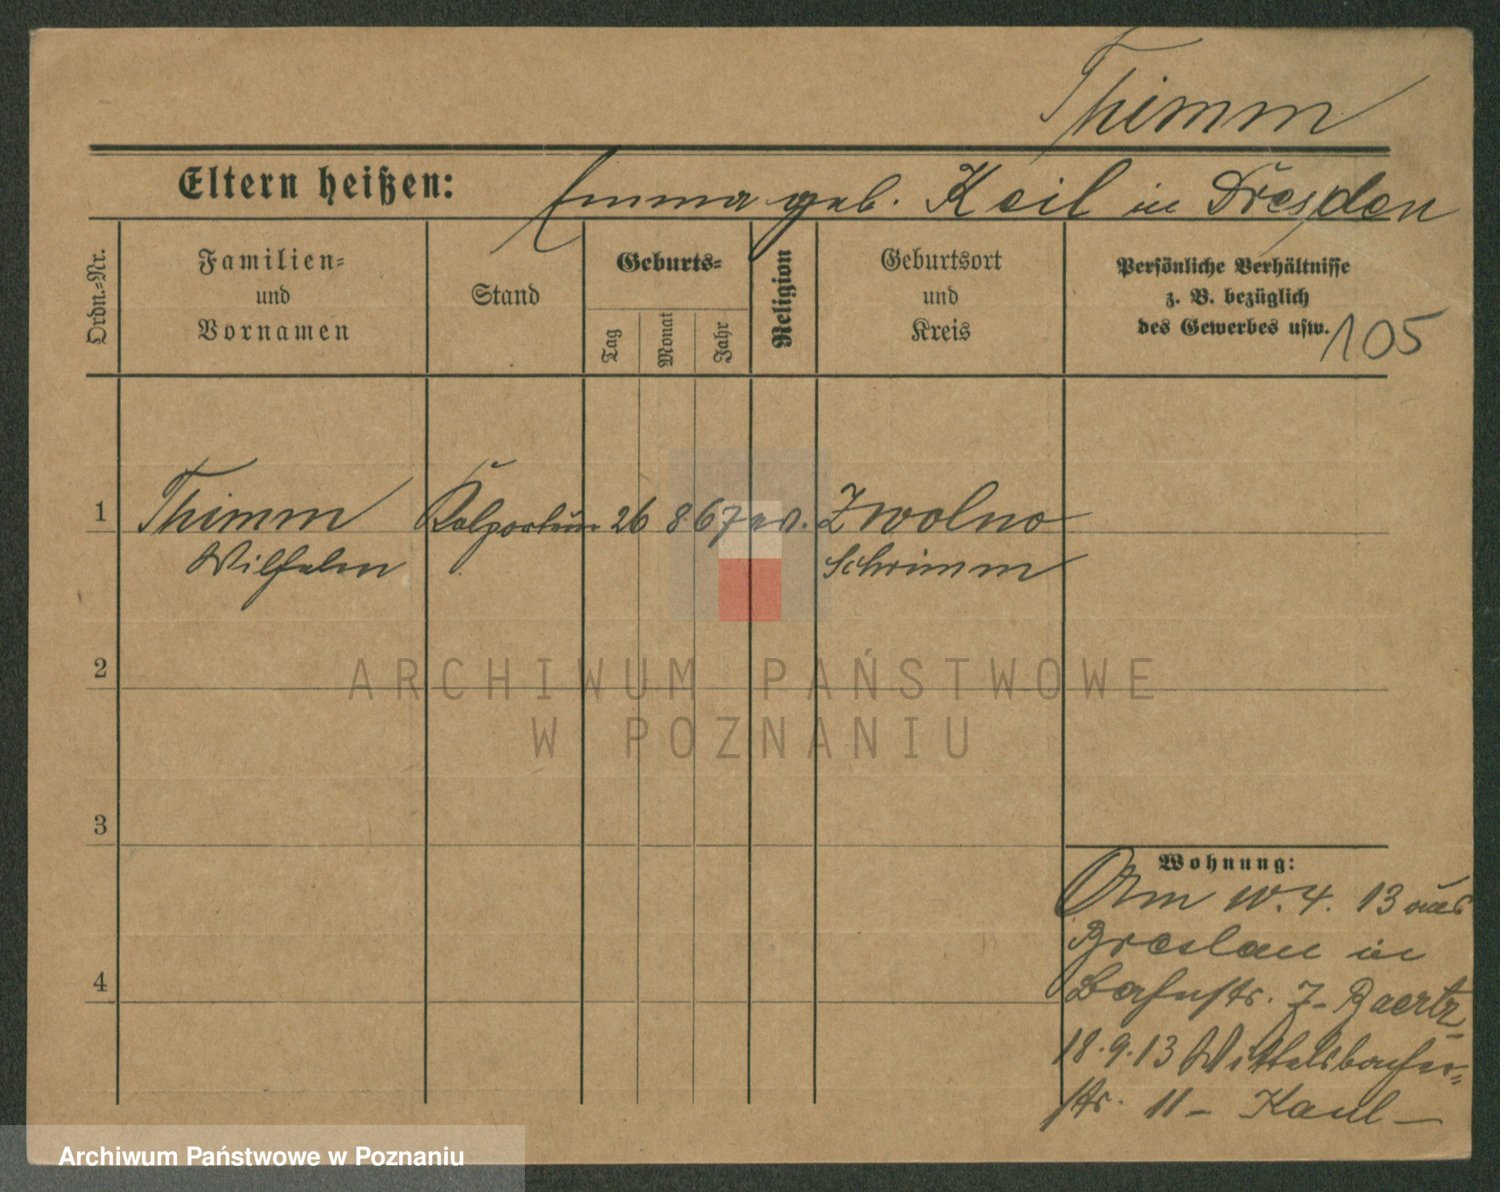 Thimm
Eltern heißen: Emma geb. Keil in Dresden
Ordn.-Nr.
Familien-
und
Vornamen
Stand
Geburts-
Tag
Monat
Jahr
Religion
Geburtsort
und
Kreis
Persönliche Verhältnisse
z. B. bezüglich
des Gewerbes usw. 105
1 Thimm Kolporteur 26 8 67 ev. Zwolno
Wilhelm Schrimm
2
ARCHIWUM PAŃSTWOWE
W POZNANIU
3
Wohnung:
Am 10. 4. 13 aus
Breslau in
4
Bahnstr. 7-
18. 9. 13 Wittelsbacher-
str. 11 - Kaul -
Archiwum Państwowe w Poznaniu